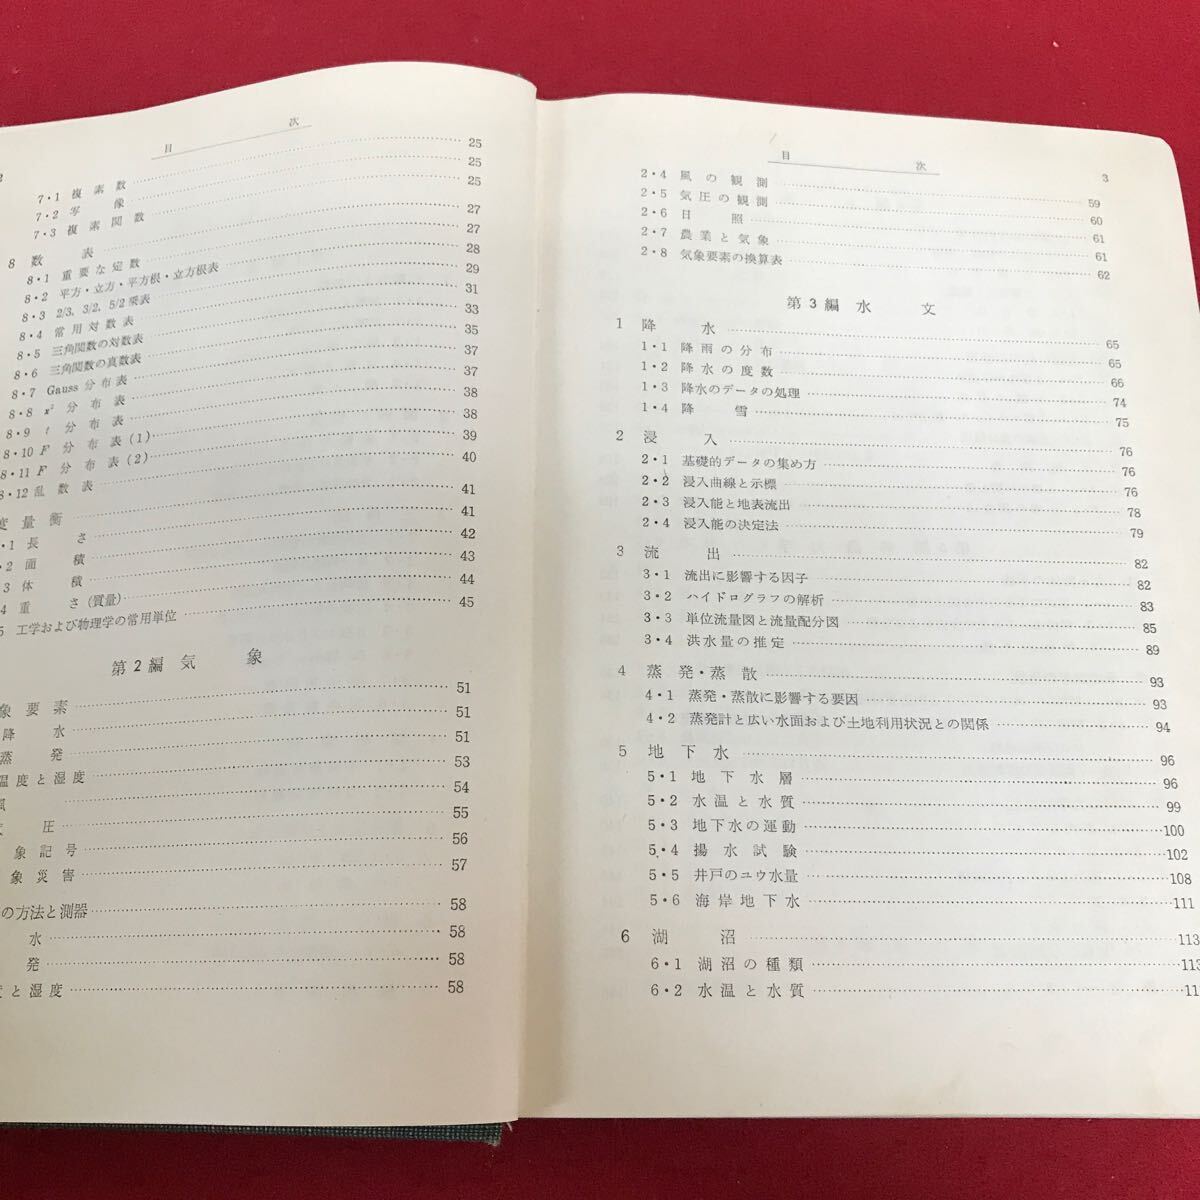 2
目次
25
7・1 複素数 25
7・2 写像 25
7・3 複素関数 27
8 数表 27
8・1 重要な定数 28
8・2 平方・立方・平方根・立方根表 29
8・3 2/3, 3/2, 5/2乗表 31
8・4 常用対数表 33
8・5 三角関数の対数表 35
8・6 三角関数の真数表 37
8・7 Gauss 分布表 37
8・8 x² 分布表 38
8・9 t 分布表 38
8・10 F 分布表(1) 39
8・11 F 分布表(2) 40
8・12 乱数表 41
度量衡 41
・1 長さ 42
・2 面積 43
3 体積 44
4 重さ(質量) 45
5 工学および物理学の常用単位
第2編 気象
象要素 51
降水 51
蒸発 51
温度と湿度 53
風 54
圧 55
象記号 56
象災害 57
の方法と測器 58
水 58
発 58
と湿度 58
目次
3
2・4 風の観測 59
2・5 気圧の観測 60
2・6 日照 61
2・7 農業と気象 61
2・8 気象要素の換算表 62
第3編 水文
1 降水 65
1・1 降雨の分布 65
1・2 降水の度数 66
1・3 降水のデータの処理 74
1・4 降雪 75
2 浸入 76
2・1 基礎的データの集め方 76
2・2 浸入曲線と示標 76
2・3 浸入能と地表流出 78
2・4 浸入能の決定法 79
3 流出 82
3・1 流出に影響する因子 82
3・2 ハイドログラフの解析 83
3・3 単位流量図と流量配分図 85
3・4 洪水量の推定 89
4 蒸発・蒸散 93
4・1 蒸発・蒸散に影響する要因 93
4・2 蒸発計と広い水面および土地利用状況との関係 94
5 地下水 96
5・1 地下水層 96
5・2 水温と水質 99
5・3 地下水の運動 100
5・4 揚水試験 102
5・5 井戸のユウ水量 108
5・6 海岸地下水 111
6 湖沼 113
6・1 湖沼の種類 113
6・2 水温と水質 11